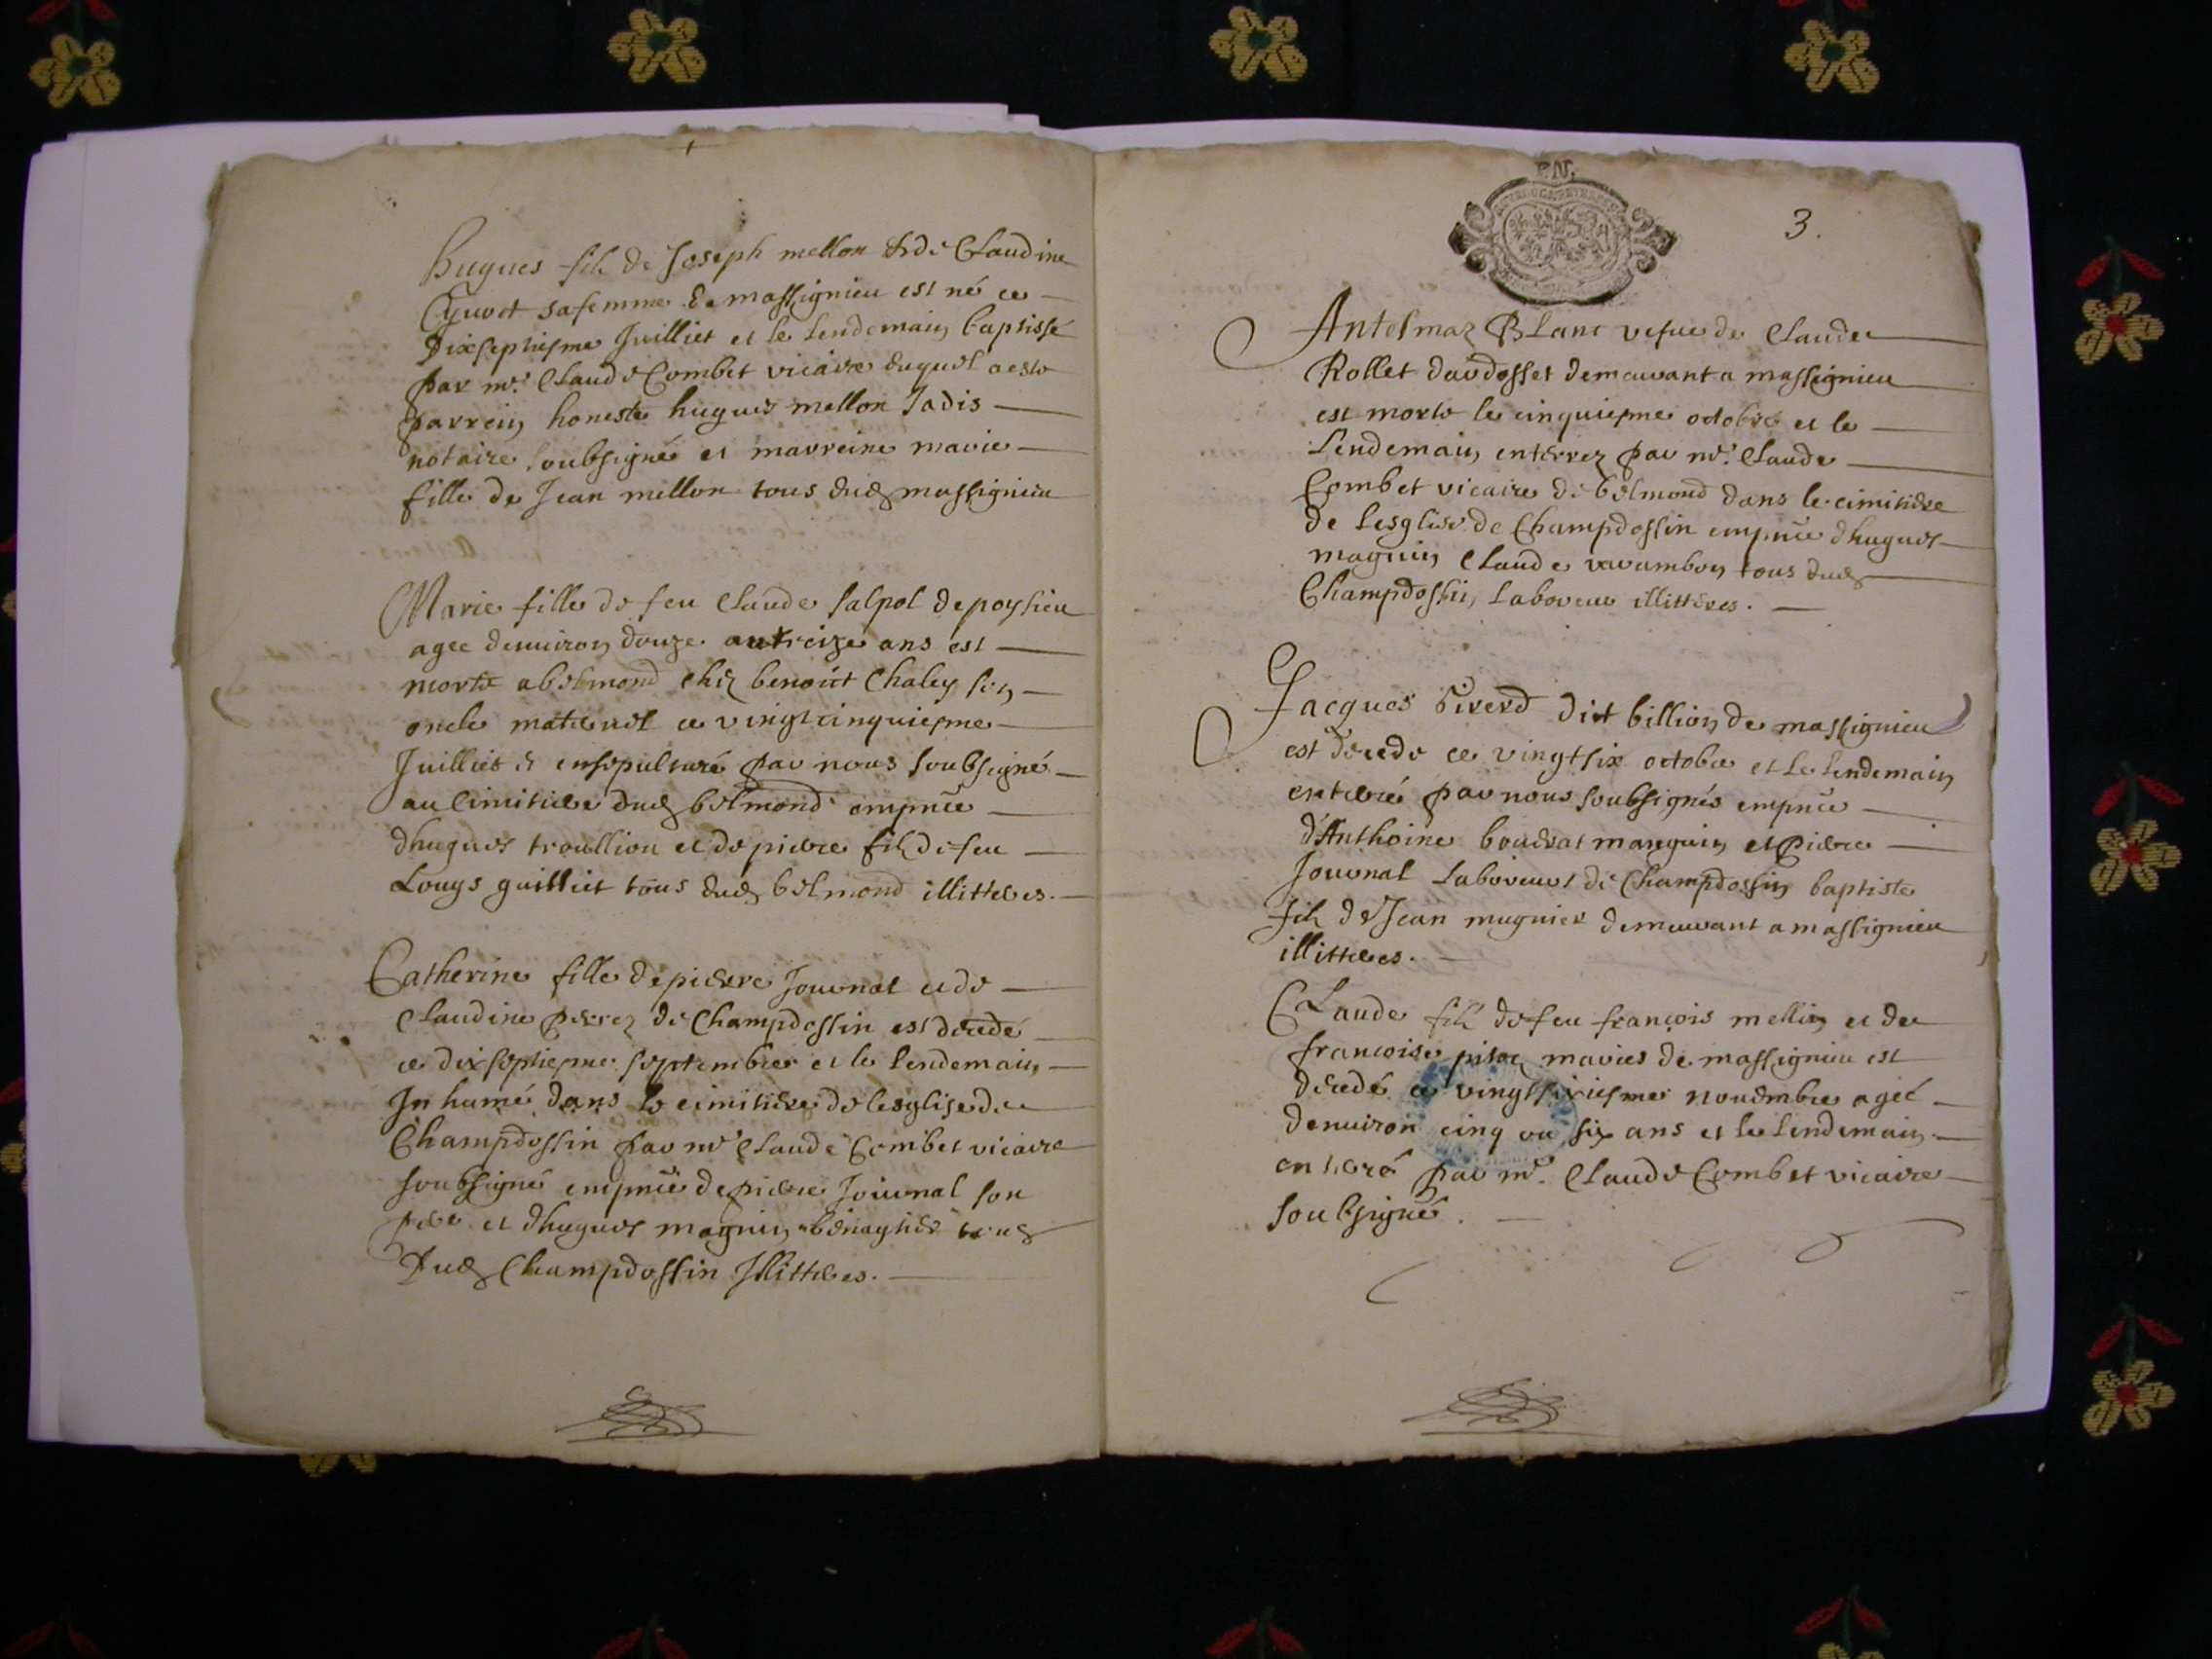 Hugues fils de Joseph mellon & de Claudine
sa femme de massignieu est né ce
Dixseptiesme Juilliet et le lendemain baptissé
par mre Claude Combet vicaire duquel a este
parrein honeste hugues mellon Jadis
notaire soubsigné et marreine marie
fille de Jean mellon tous dud massignieu
Marie fille de feu Claude salpol de poysieu
agee denviron douze ou treize ans est
morte a belmond chez benoict Chaley son
oncle maternel ce vingtcinquiesme
Juilliet & ensepulturé par nous soubsigné
au Cimitiere dud belmond empnce
dhugues troullion et de pierre fils de feu
Louys guilliet tous dud belmond illitteres.
Catherine fille de pierre Journal et de
Claudine perrez de Champdossin est decedé
ce dixseptiesme septembre et le lendemain
Inhumé dans le cimitiere de lesglise de
Champdossin par mre Claude Combet vicaire
soubsigné empnce de pierre Journal son
pere et dhugues magnin tous
Dud Champdossin Illitteres.
P.N.
3.
Antelmaz Blanc vefue de Claude
Rollet dandosset demeurant a massignieu
est morte le cinquiesme octobre et le
Lendemain enterrez par mre Claude
Combet vicaire de belmond dans le cimitiere
de Lesglise de Champdossin empnce dhugues
magnin Claude varambon tous dud
Champdossin, Laboreur illitteres.
Jacques Pirerd dict billion de massignieu
est decede ce vingtsix octobre et le lendemain
enterré par nous soubsignés empnce
d'Anthoine bouerat et Pierre
Journal Laboreurs de Champdossin baptiste
fils de Jean mugnier demeurant a massignieu
illitteres.
Claude fils de feu françois mellin et de
francoise maries de massignieu est
decedé ce vingtsixiesme nouembre agéé
denuiron cinq ou six ans et le lendemain
enterré par mre Claude Combet vicaire
soubsigné.